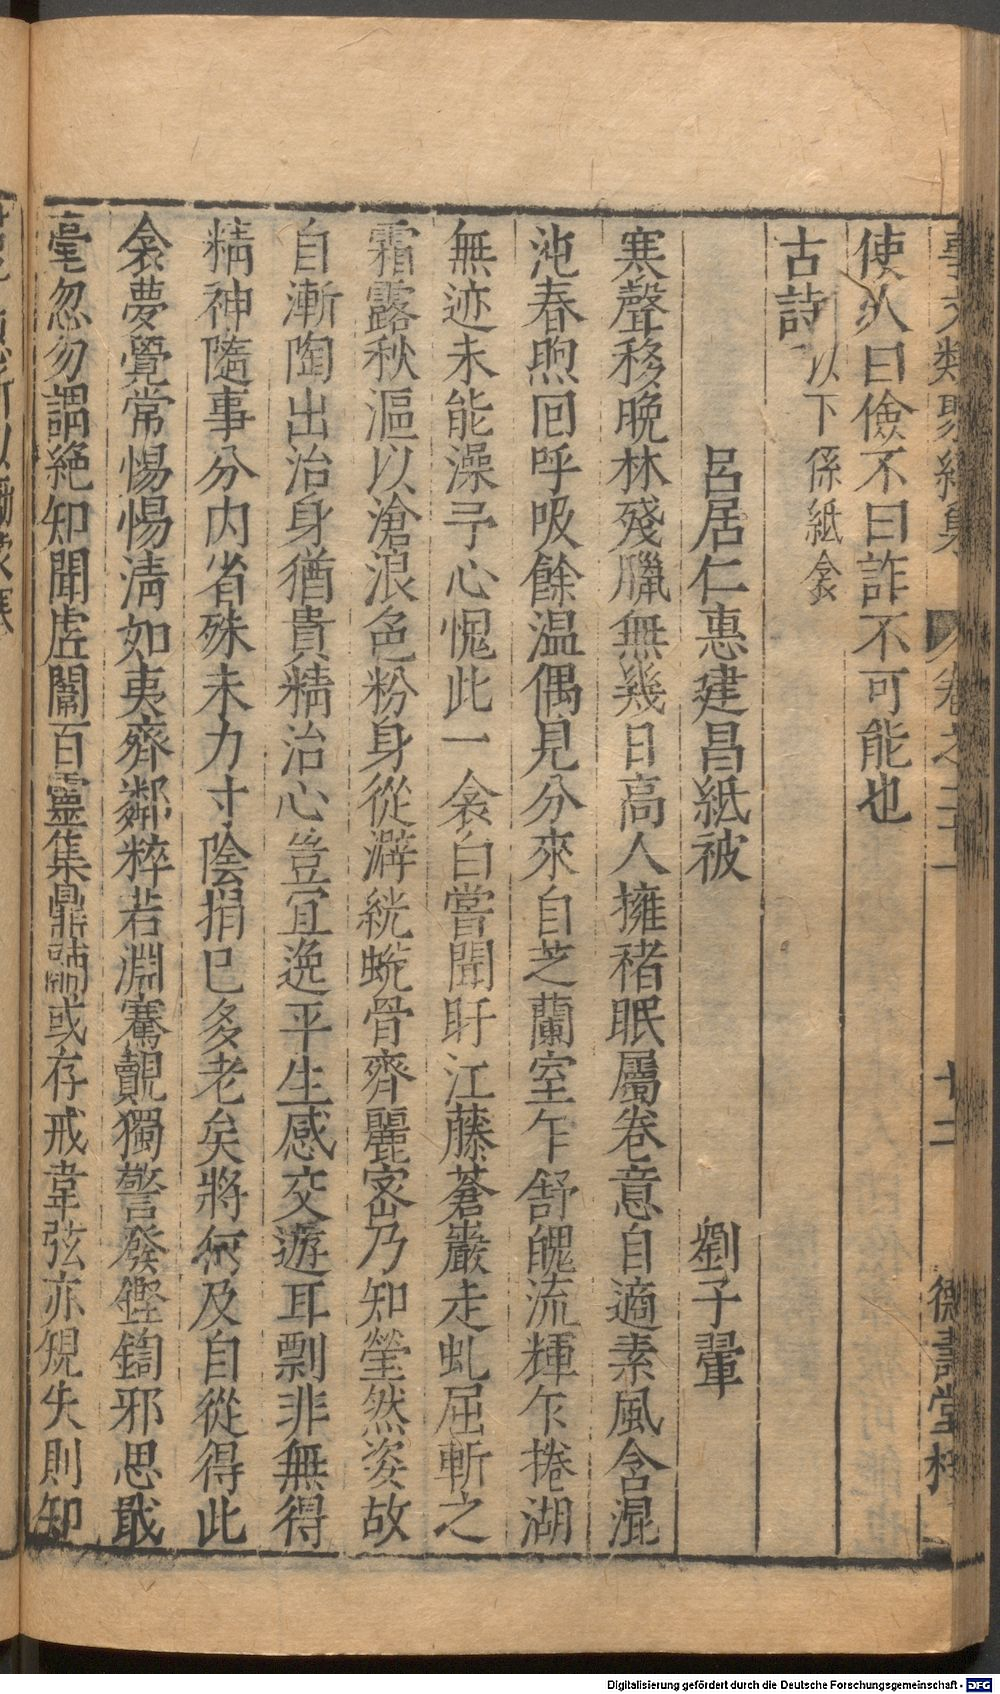 事文類聚續集 卷之二十一 十二 德壽堂梓
使人曰儉不曰詐不可能也
古詩 以下係紙衾
呂居仁惠建昌紙被 劉子翬
寒聲移晚林殘臘無幾日高人擁楮眠屬卷意自適素風含混
沌春煦囘呼吸餘温偶見分來自芝蘭室乍舒魄流輝乍捲湖
無迹未能澡予心愧此一衾白嘗聞盱江藤蒼巖走虬屈斬之
霜露秋漚以滄浪色粉身從澼絖蛻骨齊麗密乃知瑩然姿故
自漸陶出治身猶貴精治心豈宜逸平生感交遊耳剽非無得
精神隨事分内省殊未力寸陰捐已多老矣將何及自從得此
衾夢覺常惕惕淸如夷齊鄰粹若淵騫覿獨警發鏗鍧邪思戢
毫忽勿謂絶知聞虛闈百靈集鼎或存戒韋弦亦規失則知